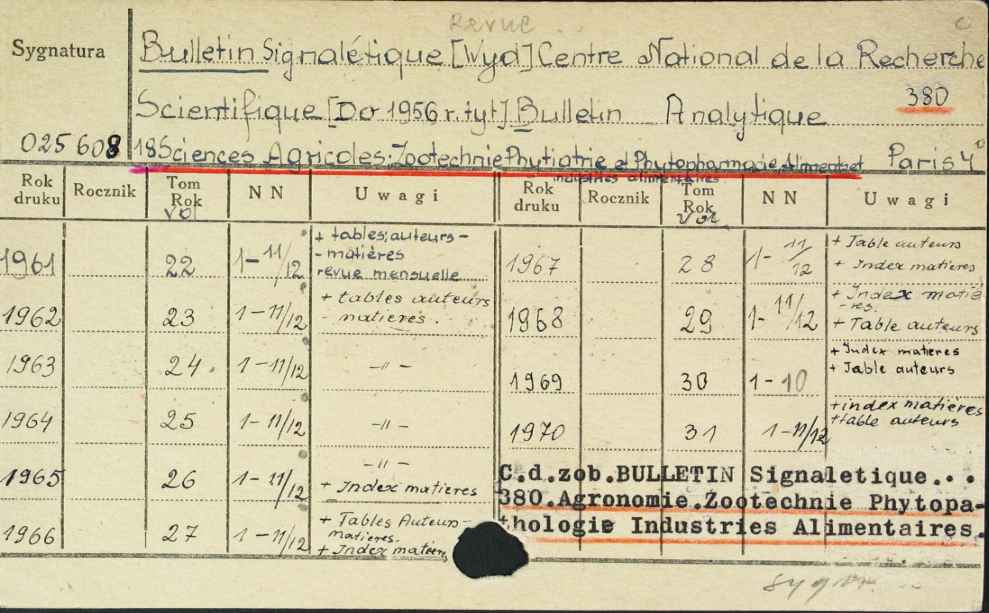 Revue
Sygnatura
Bulletin Signalétique [Wyd] Centre National de la Recherche
Scientifique [Do 1956 r. tyt]. Bulletin Analytique
380
025 608
18 Sciences Agricoles: Zootechnie Phytiatrie et Phytopharmacie, Aliments et Paris 4°
industries alimentaires
Rok druku Rocznik Tom Rok Vol NN Uwagi Rok druku Rocznik Tom Rok Vol NN Uwagi
1961 22 1-11/12 + tables; auteurs-
- matières
revue mensuelle
1962 23 1-11/12 + tables auteurs
- matieres.
1963 24. 1-11/12 -"-
1964 25 1-11/12 -"-
1965 26 1-11/12 -"-
+ Index matieres
1966 27 1-11/12 + Tables Auteur-
matieres.
+ Index matier
1967 28 1-11/12 + Table auteurs
+ Index matieres
1968 29 1-11/12 + Index matiè
-res.
+ Table auteurs
1969 30 1-10 + Index matieres
+ Table auteurs
1970 31 1-11/12 + index matières
+ table auteurs
C.d.zob.BULLETIN Signaletique...
380.Agronomie.Zootechnie Phytopa-
thologie Industries Alimentaires.